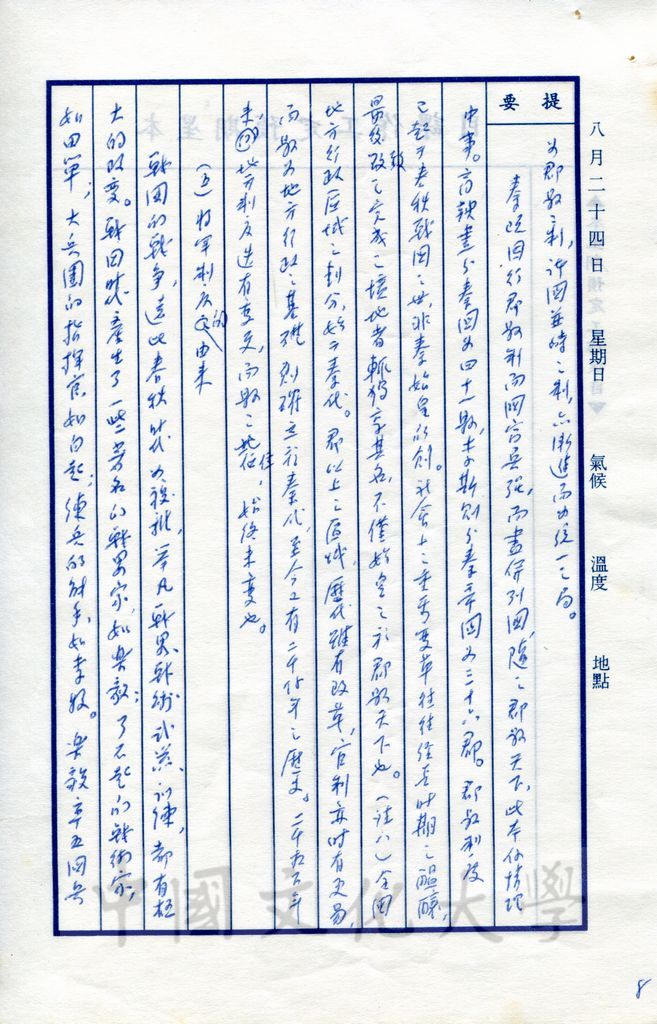 八月二十四日 星期日 氣候 溫度 地點
提要
為郡縣之制，諸國並時之制，亦漸進而為統一之局。
秦既因行郡縣制而國富兵強，而盡併列國，隨之郡縣天下，此本係情理
中事。商鞅畫分秦國為四十一縣，李斯則分秦帝國為三十六郡。郡縣制度
已起于春秋戰國之世，非秦始皇所創。社會上之重要變革往往經長時期之醞釀，
最後改之完成之境地者輒獨享其名，不僅始皇之於郡縣天下也。（註八）全國
致
地方行政區域之劃分，始于秦代。郡以上之區域，歷代雖有改革，官制亦時有更易，
而縣為地方行政之基礎，則確立於秦代，至今又有二千餘年之歷史。二千五百年
來，地方制度迭有變更，而縣之地位，始終未變也。
（五）將軍制度的由來
戰國的戰爭，遠比春秋時代為複雜，舉凡戰略、戰術、武器、訓練，都有極
大的改變。戰國時代產生了一些著名的戰略家，如樂毅；了不起的戰術家，
如田單；大兵團的指揮官，如白起；練兵的好手，如李牧。樂毅率五國兵
8
中國文化大學